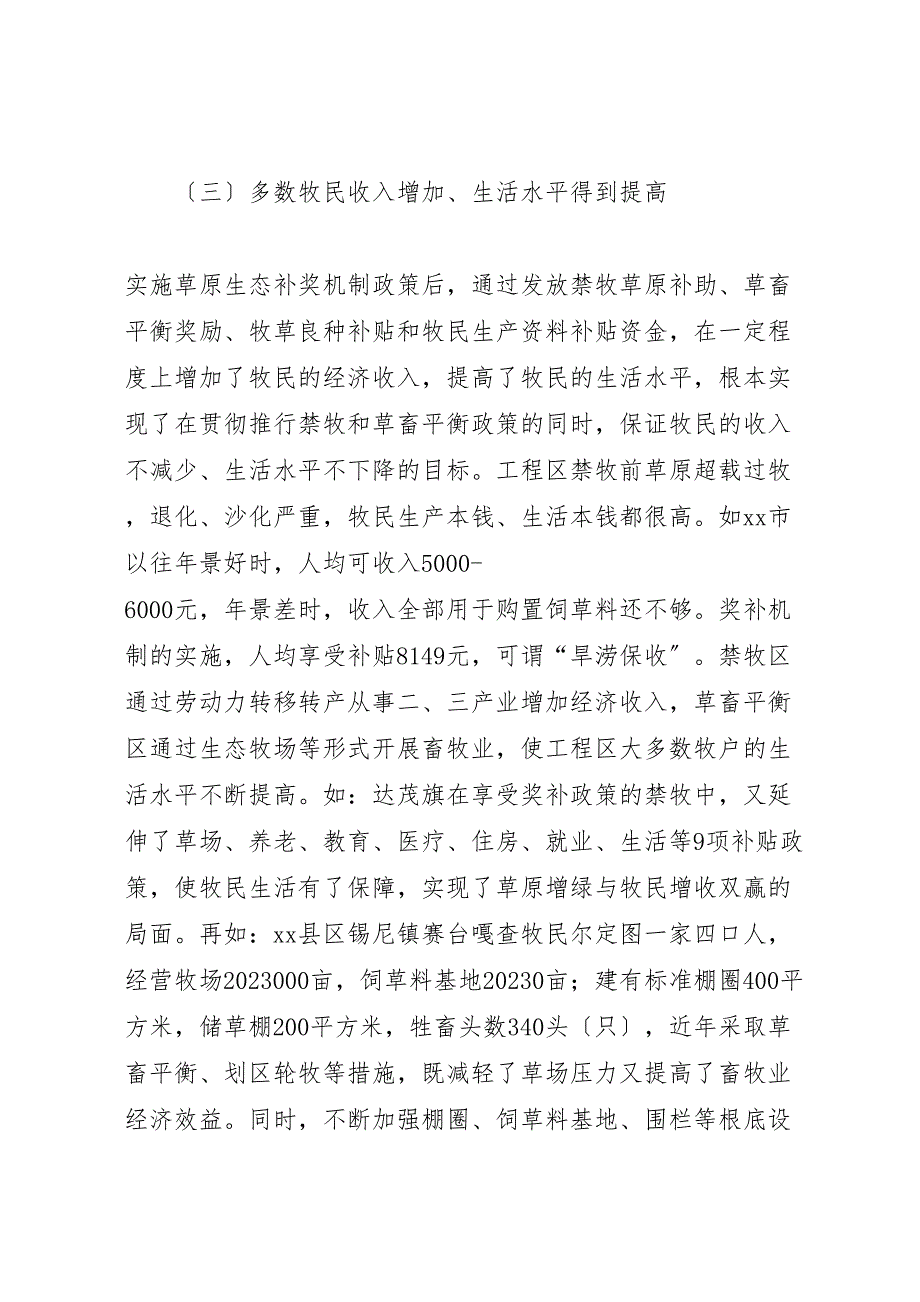 〔三〕多数牧民收入增加、生活水平得到提高
实施草原生态补奖机制政策后，通过发放禁牧草原补助、草畜
平衡奖励、牧草良种补贴和牧民生产资料补贴资金，在一定程
度上增加了牧民的经济收入，提高了牧民的生活水平，根本实
现了在贯彻推行禁牧和草畜平衡政策的同时，保证牧民的收入
不减少、生活水平不下降的目标。工程区禁牧前草原超载过牧
，退化、沙化严重，牧民生产本钱、生活本钱都很高。如xx市
以往年景好时，人均可收入5000-
6000元，年景差时，收入全部用于购置饲草料还不够。奖补机
制的实施，人均享受补贴8149元，可谓“旱涝保收〞。禁牧区
通过劳动力转移转产从事二、三产业增加经济收入，草畜平衡
区通过生态牧场等形式开展畜牧业，使工程区大多数牧户的生
活水平不断提高。如：达茂旗在享受奖补政策的禁牧中，又延
伸了草场、养老、教育、医疗、住房、就业、生活等9项补贴政
策，使牧民生活有了保障，实现了草原增绿与牧民增收双赢的
局面。再如：xx县区锡尼镇赛台嘎查牧民尔定图一家四口人，
经营牧场2023000亩，饲草料基地20230亩；建有标准棚圈400平
方米，储草棚200平方米，牲畜头数340头〔只〕，近年采取草
畜平衡、划区轮牧等措施，既减轻了草场压力又提高了畜牧业
经济效益。同时，不断加强棚圈、饲草料基地、围栏等根底设